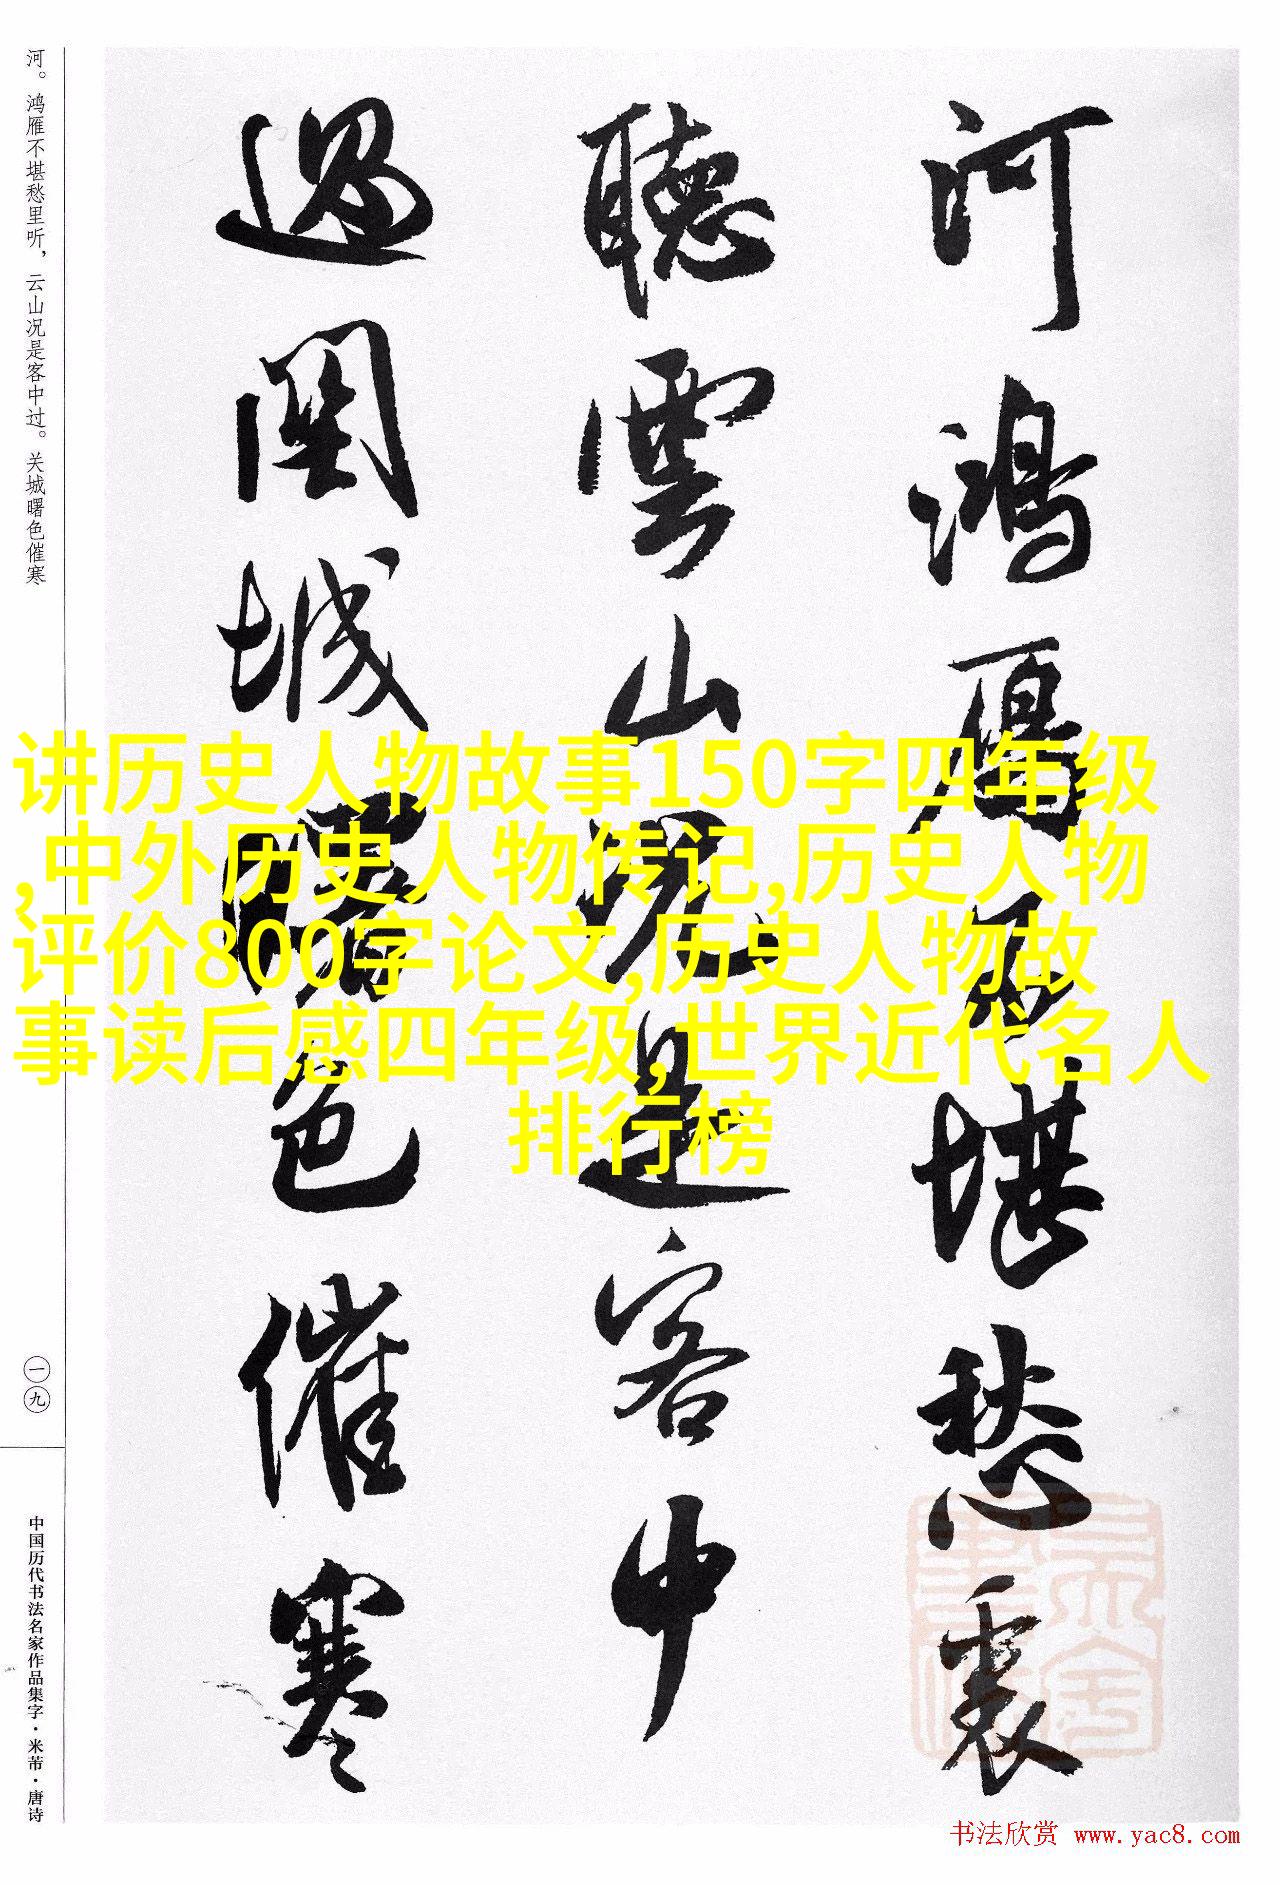 河鸿雁不堪愁裏
聽雲山況是客中
過関城曙色催寒
河。鸿雁不堪愁里听，云山况是客中过。关城曙色催寒
一九
中国历代书法名家作品集字·米芾·唐诗
讲历史人物故事150字四年级
,中外历史人物传记,历史人物
评价800字论文,历史人物故
事读后感四年级,世界近代名人
排行榜
书法欣赏 www.yac8.com